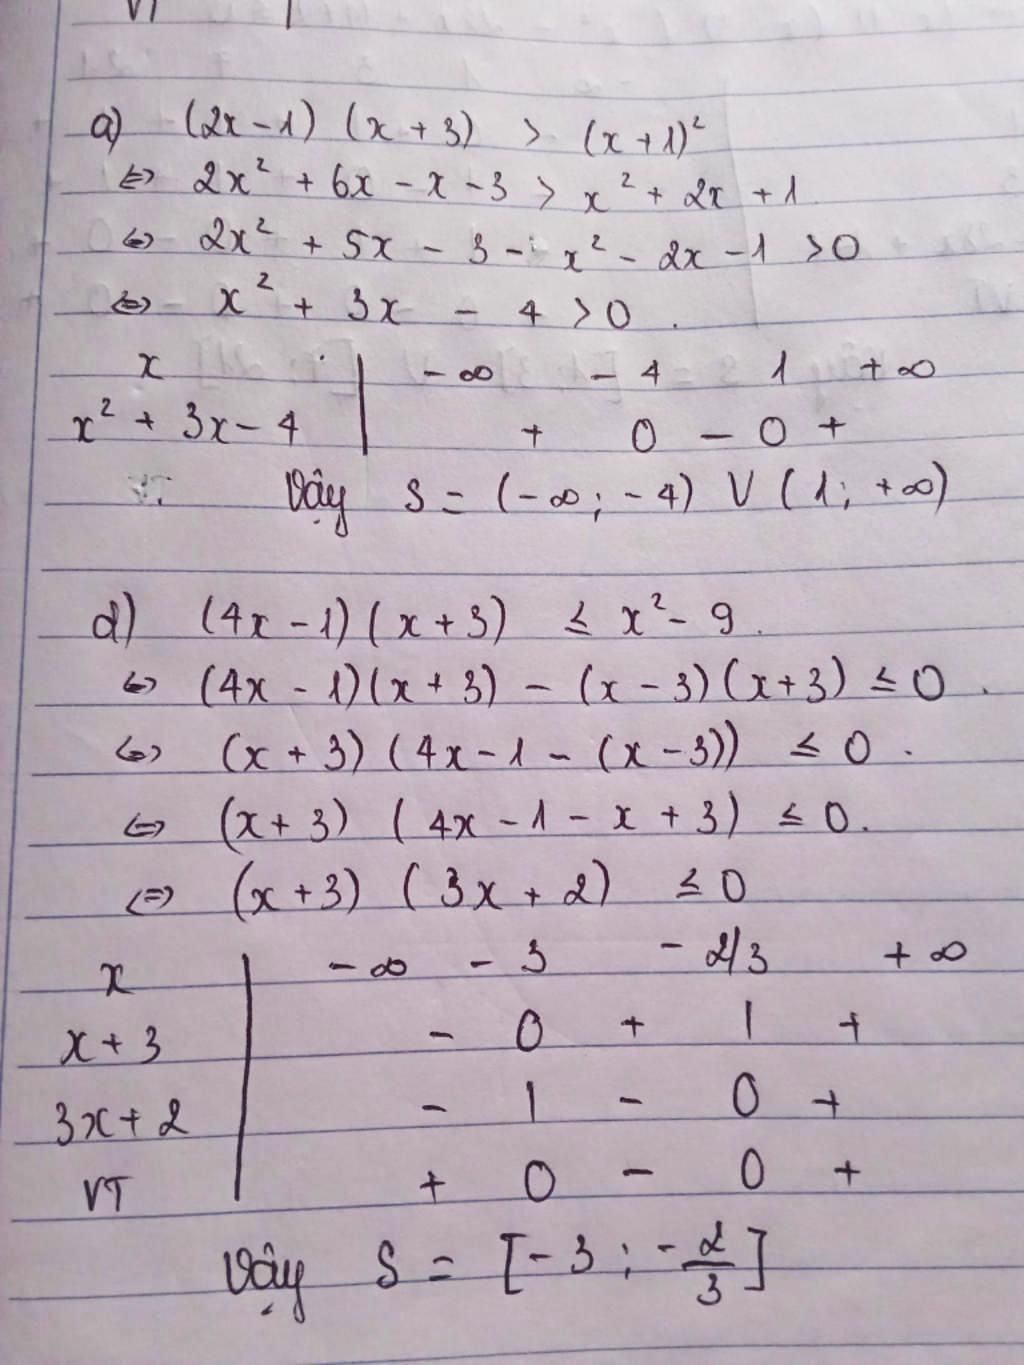 VT
a) (2x - 1) (x + 3) > (x + 1)²
⇔ 2x² + 6x - x - 3 > x² + 2x + 1
⇔ 2x² + 5x - 3 - x² - 2x - 1 > 0
⇔ x² + 3x - 4 > 0.
x | -∞ -4 1 +∞
x² + 3x - 4 | + 0 - 0 +
Vậy S = (-∞; -4) V (1; +∞)
d) (4x - 1) (x + 3) ≤ x² - 9.
⇔ (4x - 1)(x + 3) - (x - 3)(x + 3) ≤ 0.
⇔ (x + 3) (4x - 1 - (x - 3)) ≤ 0.
⇔ (x + 3) (4x - 1 - x + 3) ≤ 0.
⇔ (x + 3) (3x + 2) ≤ 0
x | -∞ -3 -2/3 +∞
x + 3 | - 0 + | +
3x + 2 | - | - 0 +
VT | + 0 - 0 +
Vậy S = [-3; -2/3]